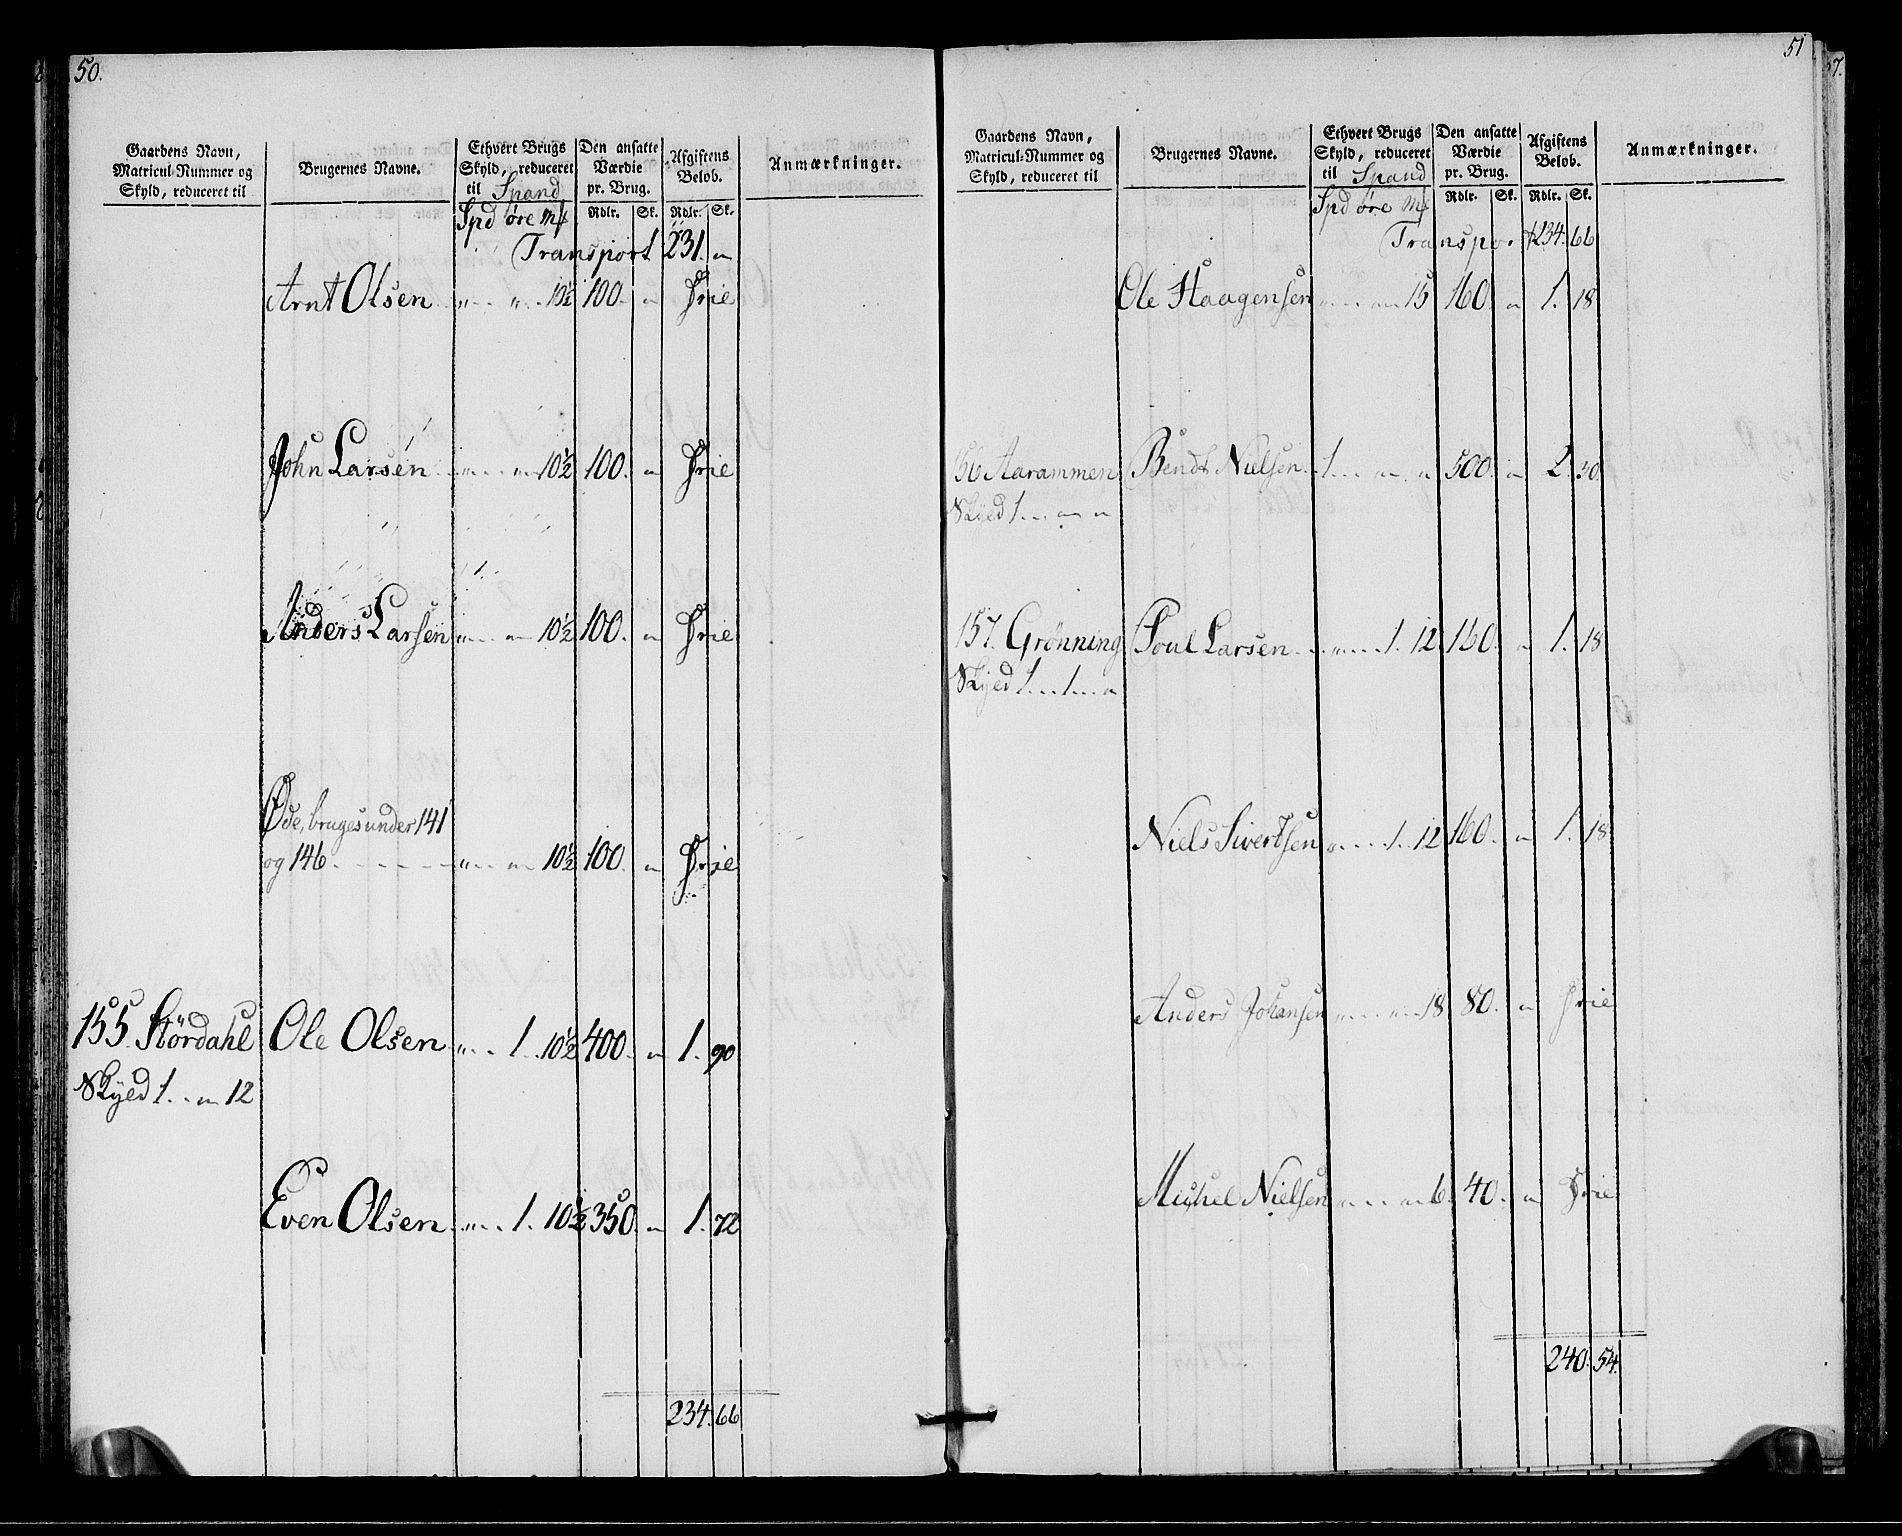 50.
Gaardens Navn, Matricul-Nummer og Skyld, reduceret til | Brugernes Navne. | Ethvert Brugs Skyld, reduceret til Spand | Den ansatte Værdie pr. Brug. | Afgiftens Beløb. | Anmærkninger.
Spd øre Mk | Rdlr. | Sk. | Rdlr. | Sk.
Transport 231. "
Arnt Olsen " " 10½ 100. " Frie
John Larsen " " 10½ 100. " Frie
Anders Larsen " " 10½ 100. " Frie
Øde, bruges under 141
og 146 " " 10½ 100. " Frie
155. Stördahl Ole Olsen " 1. 10½ 400. " 1. 90
Skyed 1. " 12
Even Olsen " 1. 10½ 350. " 1. 72
234. 66
51
Gaardens Navn, Matricul-Nummer og Skyld, reduceret til | Brugernes Navne. | Ethvert Brugs Skyld, reduceret til Spand | Den ansatte Værdie pr. Brug. | Afgiftens Beløb. | Anmærkninger.
Spd øre Mk | Rdlr. | Sk. | Rdlr. | Sk.
Transport 234. 66
Ole Haagensen " " 15 160. " 1. 18
156 Aarammen Bendt Nielsen 1 " " 500. " 2. 30.
Skyed 1. " "
157. Grönning Poul Larsen " 1. 12 160. " 1. 18
Skyed 1. 1. "
Niels Sivertsen " 1. 12 160. " 1. 18
Anders Johansen " " 18 80. " Frie
Michel Nielsen " " 6. 40. " Frie
240. 54.